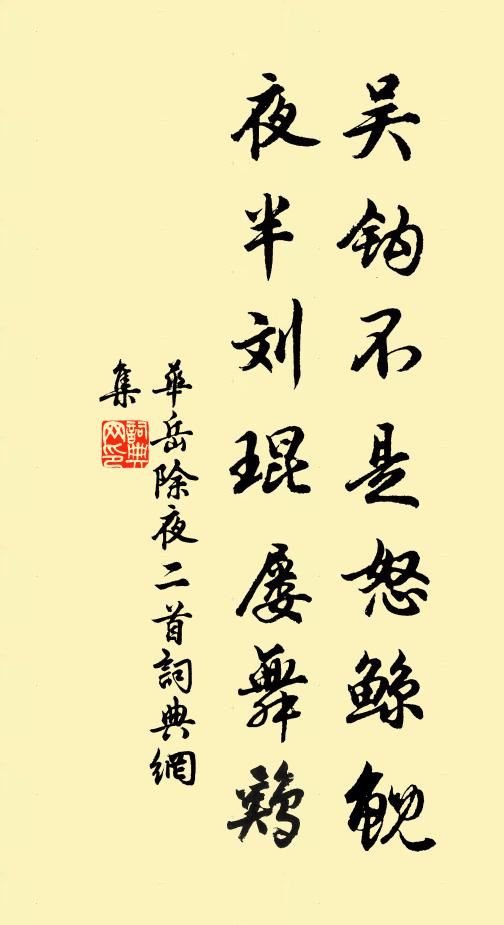 吴钩不是怒鲸鲵
夜半刘琨屡舞鸡
華岳除夜二首詞典網
集
詞典
网印